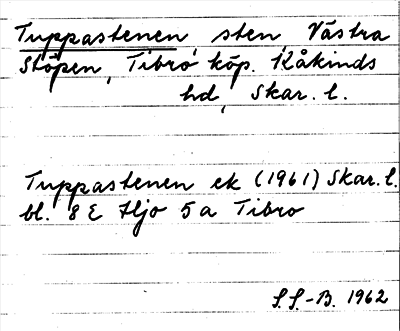 Tuppastenen, sten, Västra
Stöpen, Tibro köp. Kåkinds
hd, Skar. l.
Tuppastenen ek (1961) Skar. l.
bl. 8 E Hjo 5 a Tibro
S.S.-B. 1962